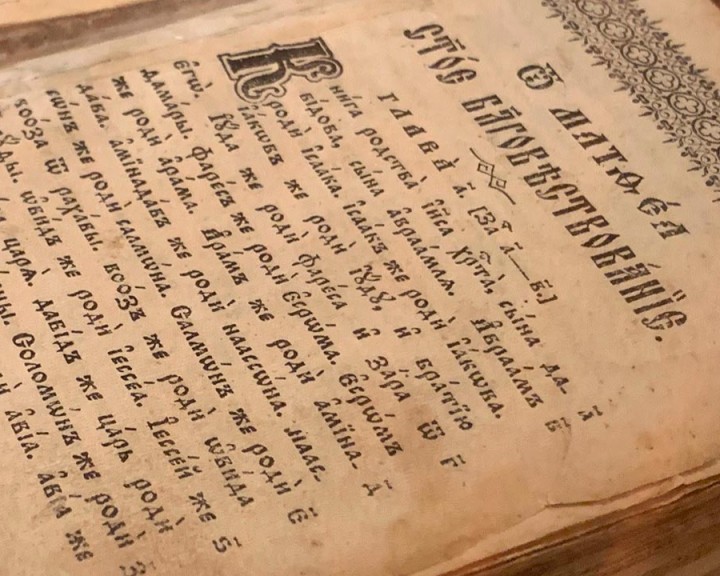 Ѿ МАТѲЕ́А
СТ҃О́Е БЛ҃ГОВѢСТВОВА́НЇЕ.
ГЛАВА̀ а҃. [За҃ а҃ — в҃.]
Кни́га родства̀ і҆и҃са хрⷭ҇та̀, сы́на да- а҃
ві́дова, сы́на а҆враа́млѧ. А҆враа́мъ в҃
родѝ і҆саа́ка. і҆саа́къ же родѝ і҆а́кѡва.
і҆а́кѡвъ же родѝ і҆ꙋ́дꙋ, и҆ бра́тїю
є҆гѡ̀. І҆ꙋ́да же родѝ фаре́са и҆ за́ра ѿ г҃
ѳама́ры. фаре́съ же родѝ є҆срѡ́ма. є҆срѡ́мъ
же родѝ а҆ра́ма. А҆ра́мъ же родѝ а҆мїна- д҃
да́ва. а҆мїнада́въ же родѝ наассѡ́на. наас-
сѡ́нъ же родѝ салмѡ́на. Салмѡ́нъ же родѝ є҃
воо́за ѿ раха́вы. воо́зъ же родѝ ѡ҆ви́да
ѡ҆ви́дъ же родѝ і҆ессе́а. І҆ессе́й же ѕ҃
царѧ̀. даві́дъ же ца́рь родѝ
Соломѡ́нъ же родѝ з҃
а҆ві́а. а҆ві́а же